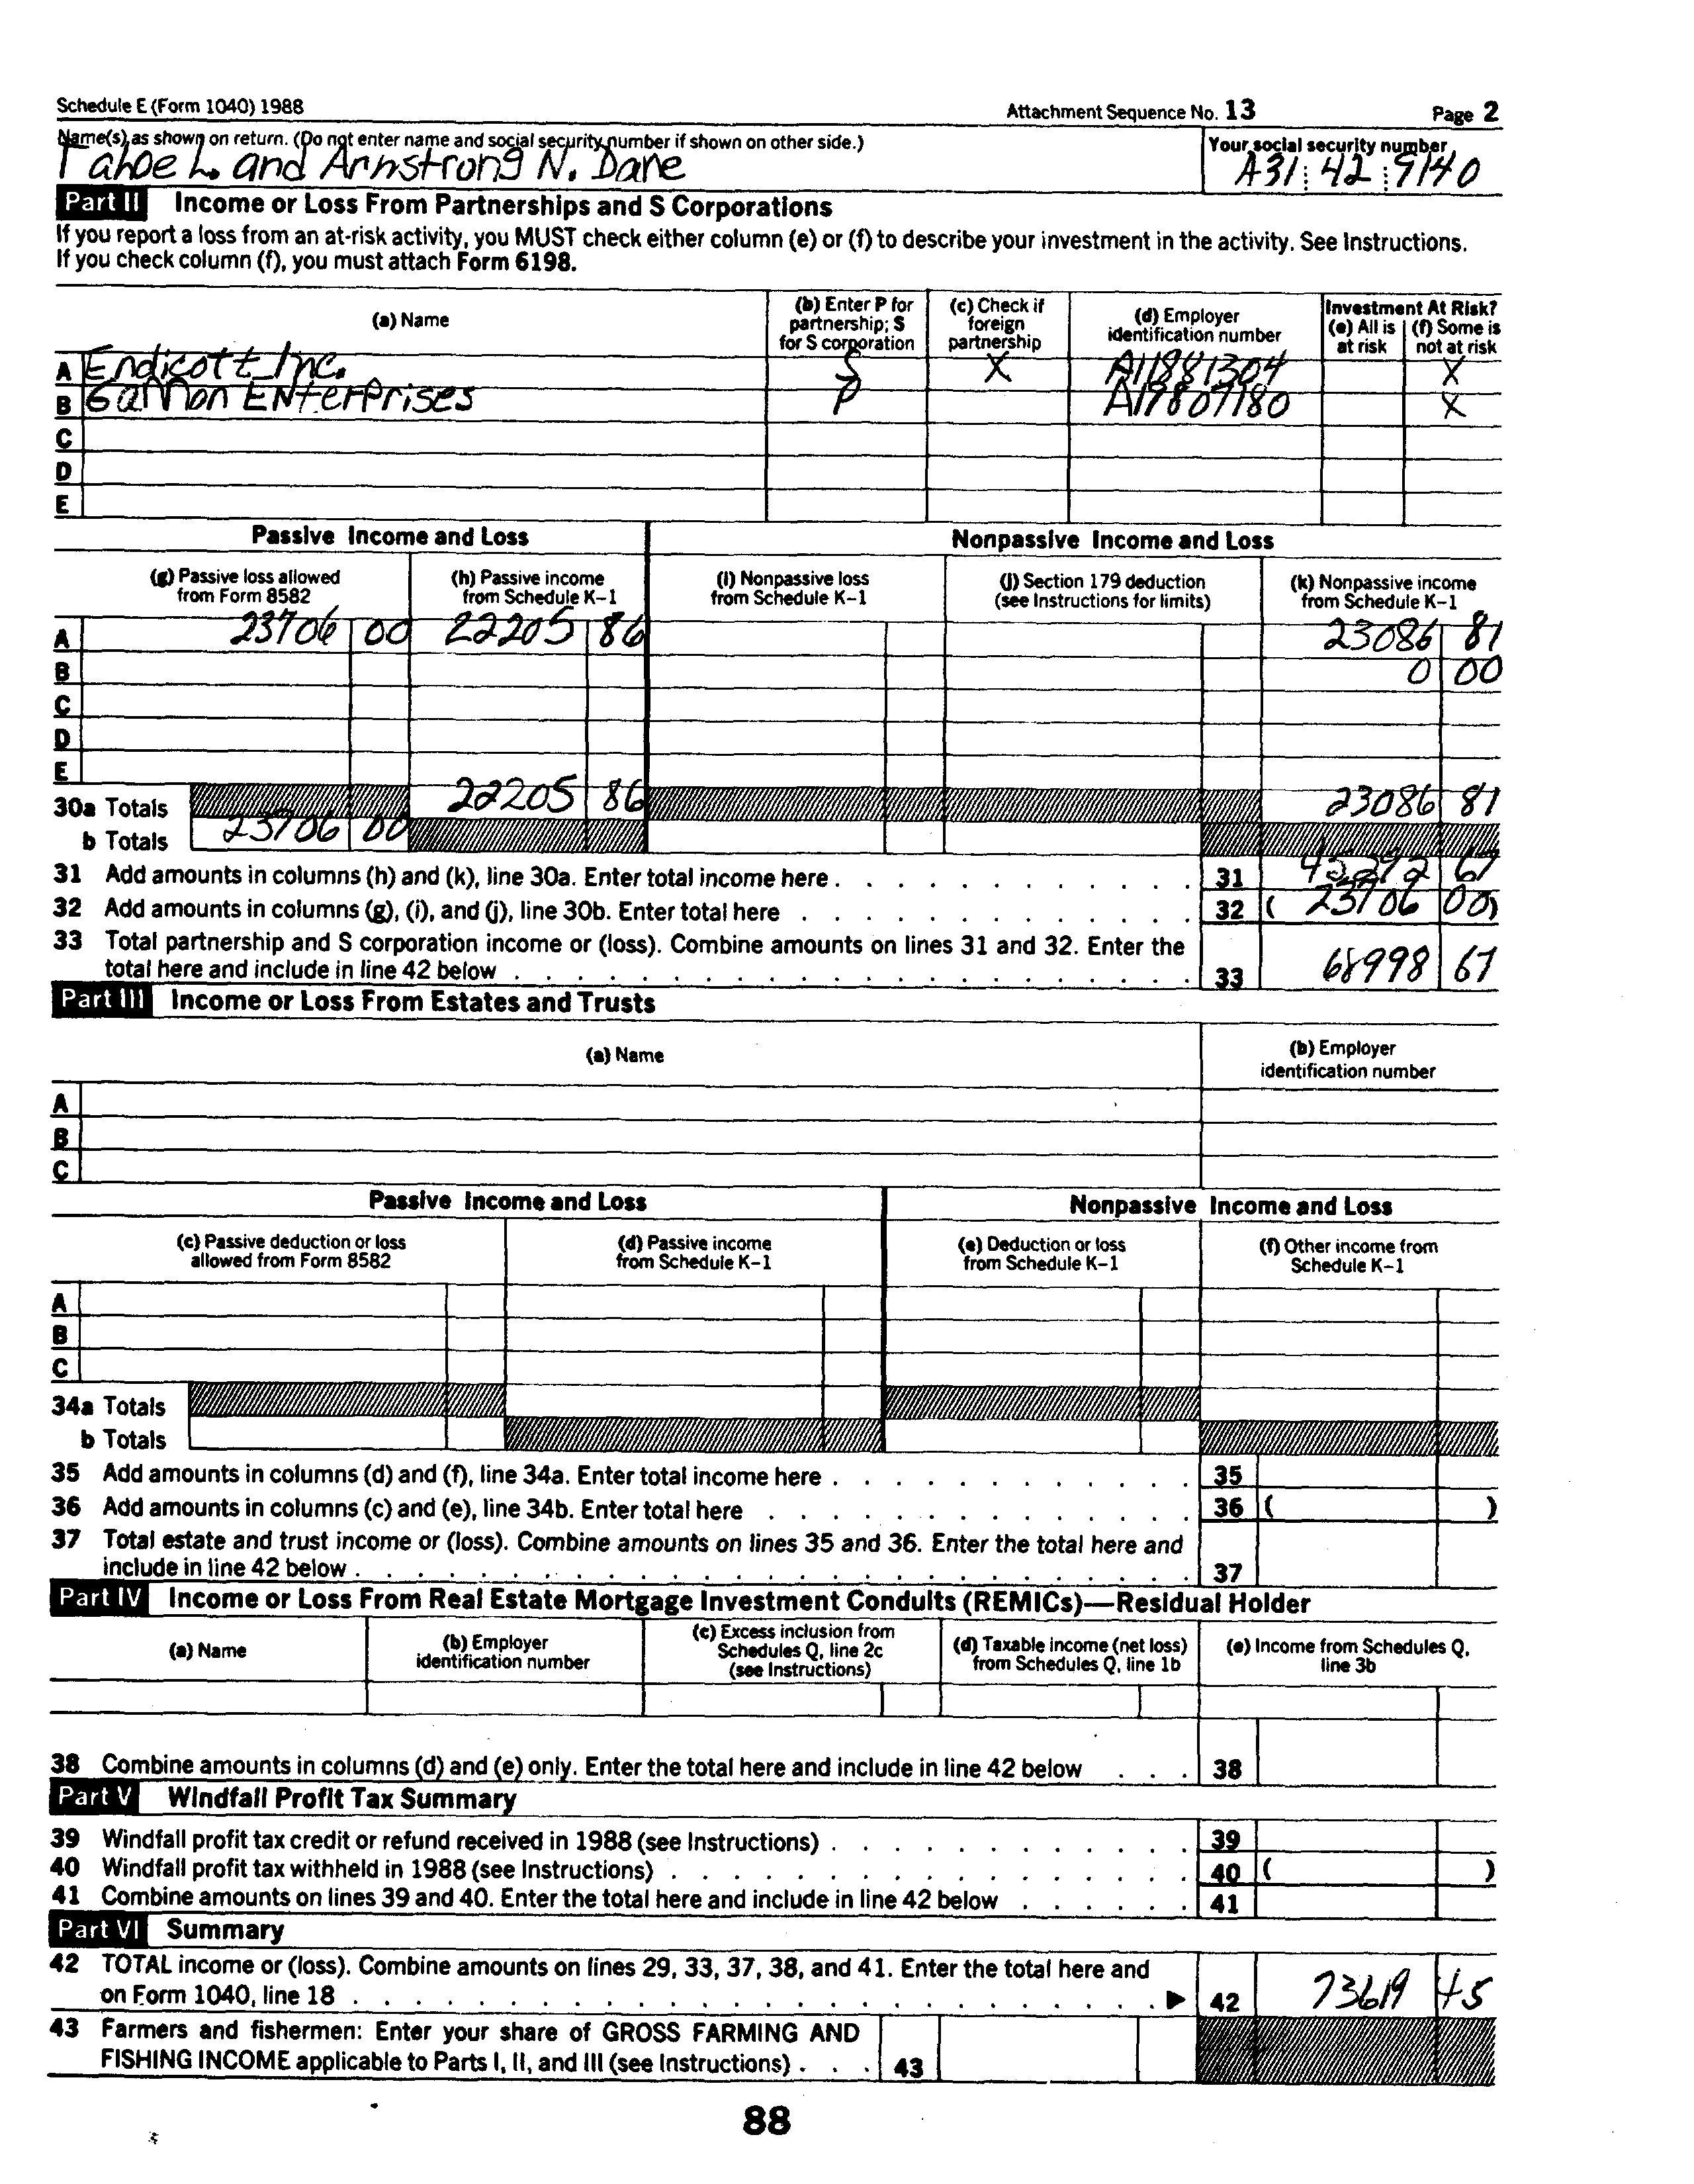 Schedule E (Form 1040) 1988 Attachment Sequence No. 13 Page 2
Name(s) as shown on return. (Do not enter name and social security number if shown on other side.) Your social security number
Tahoe L. and Armstrong N. Dane A31 42 9140
Part II Income or Loss From Partnerships and S Corporations
If you report a loss from an at-risk activity, you MUST check either column (e) or (f) to describe your investment in the activity. See Instructions.
If you check column (f), you must attach Form 6198.
(a) Name
(b) Enter P for partnership; S for S corporation
(c) Check if foreign partnership
(d) Employer identification number
Investment At Risk?
(e) All is at risk
(f) Some is not at risk
A Endicott Inc. S X A11881304 X
B Gannon ENterprises P A17807180 X
C
D
E
Passive Income and Loss Nonpassive Income and Loss
(g) Passive loss allowed from Form 8582
(h) Passive income from Schedule K–1
(i) Nonpassive loss from Schedule K–1
(j) Section 179 deduction (see Instructions for limits)
(k) Nonpassive income from Schedule K–1
A 23706 00 22205 86 23086 81
B 0 00
C
D
E
30a Totals 22205 86 23086 81
b Totals 23706 00
31 Add amounts in columns (h) and (k), line 30a. Enter total income here 31 45292 67
32 Add amounts in columns (g), (i), and (j), line 30b. Enter total here 32 ( 23706 00)
33 Total partnership and S corporation income or (loss). Combine amounts on lines 31 and 32. Enter the
total here and include in line 42 below 33 68998 67
Part III Income or Loss From Estates and Trusts
(a) Name
(b) Employer identification number
A
B
C
Passive Income and Loss Nonpassive Income and Loss
(c) Passive deduction or loss allowed from Form 8582
(d) Passive income from Schedule K–1
(e) Deduction or loss from Schedule K–1
(f) Other income from Schedule K–1
A
B
C
34a Totals
b Totals
35 Add amounts in columns (d) and (f), line 34a. Enter total income here 35
36 Add amounts in columns (c) and (e), line 34b. Enter total here 36 ( )
37 Total estate and trust income or (loss). Combine amounts on lines 35 and 36. Enter the total here and
include in line 42 below 37
Part IV Income or Loss From Real Estate Mortgage Investment Conduits (REMICs)—Residual Holder
(a) Name
(b) Employer identification number
(c) Excess inclusion from Schedules Q, line 2c (see Instructions)
(d) Taxable income (net loss) from Schedules Q, line 1b
(e) Income from Schedules Q, line 3b
38 Combine amounts in columns (d) and (e) only. Enter the total here and include in line 42 below 38
Part V Windfall Profit Tax Summary
39 Windfall profit tax credit or refund received in 1988 (see Instructions) 39
40 Windfall profit tax withheld in 1988 (see Instructions) 40 ( )
41 Combine amounts on lines 39 and 40. Enter the total here and include in line 42 below 41
Part VI Summary
42 TOTAL income or (loss). Combine amounts on lines 29, 33, 37, 38, and 41. Enter the total here and
on Form 1040, line 18 42 73619 45
43 Farmers and fishermen: Enter your share of GROSS FARMING AND
FISHING INCOME applicable to Parts I, II, and III (see Instructions) 43
88